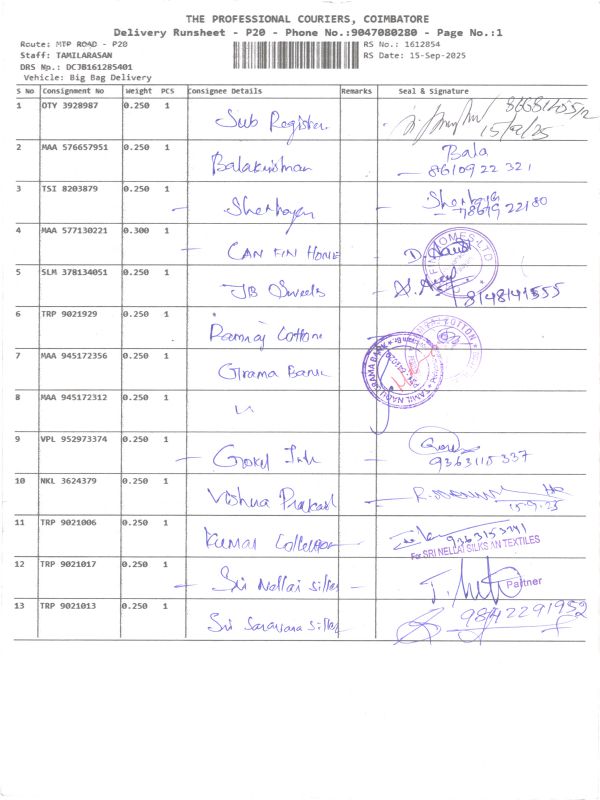 THE PROFESSIONAL COURIERS, COIMBATORE
Delivery Runsheet - P20 - Phone No.:9047080280 - Page No.:1
Route: MTP ROAD - P20 RS No.: 1612854
Staff: TAMILARASAN RS Date: 15-Sep-2025
DRS No.: DCJB161285401
Vehicle: Big Bag Delivery
S No Consignment No Weight PCS Consignee Details Remarks Seal & Signature
1 OTY 3928987 0.250 1 Sub Register 15/9/25
2 MAA 576657951 0.250 1 Balakrishnan Bala
8610922321
3 TSI 8203879 0.250 1
4 MAA 577130221 0.300 1 CAN FIN HOME
5 SLM 378134051 0.250 1 JB Sweets 8148141555
6 TRP 9021929 0.250 * Ramraj Cotton
7 MAA 945172356 0.250 1 Grama Bank
8 MAA 945172312 0.250 1 "
9 VPL 952973374 0.250 1 9363115337
10 NKL 3624379 0.250 1 Vishnu Prakash 15-9-25
11 TRP 9021006 0.250 1 Kumar 9363153241
For SRI NELLAI SILKS AN TEXTILES
12 TRP 9021017 0.250 1 Sri Nellai Silks Partner
13 TRP 9021013 0.250 1 Sri Saravana Silks 9842291952